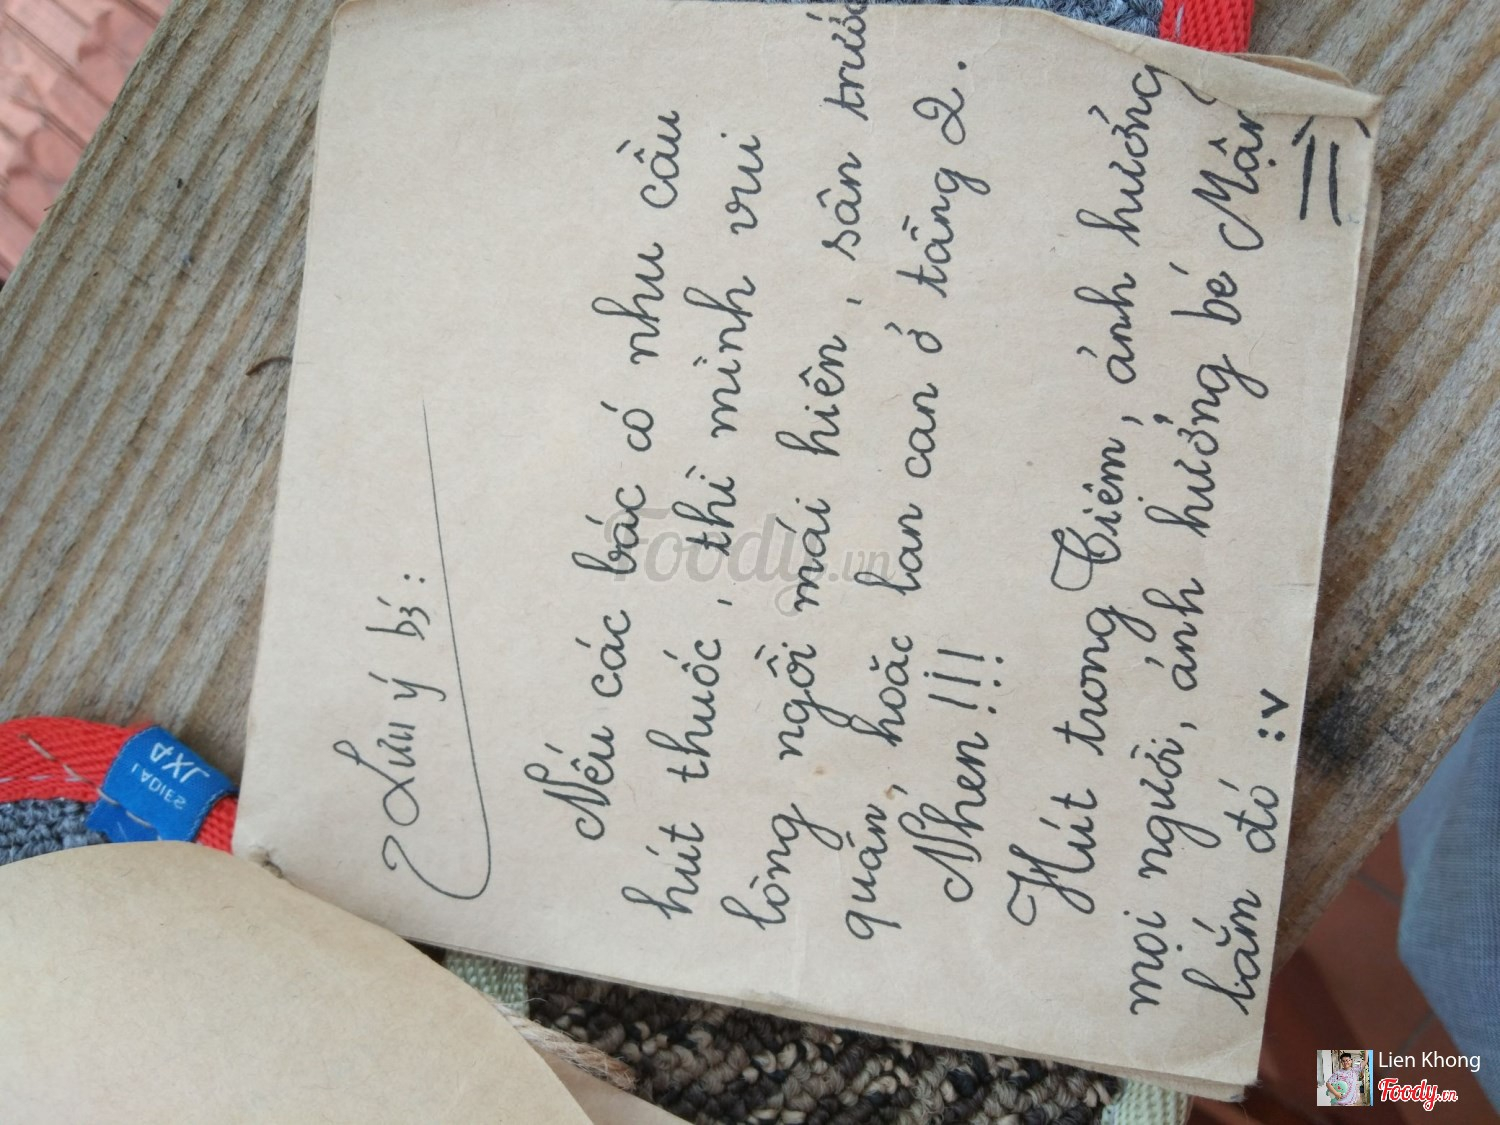 Lưu ý bé:
Nếu các bác có nhu cầu
hút thuốc, thì mình vui
lòng ngồi mái hiên, sân trước
quán, hoặc lan can ở tầng 2.
Nhen !!!
Hút trong Tiệm, ảnh hưởng
mọi người, ảnh hưởng bé Mận
lắm đó :v
JXA
Foody.vn
Lien Khong
Foody.vn